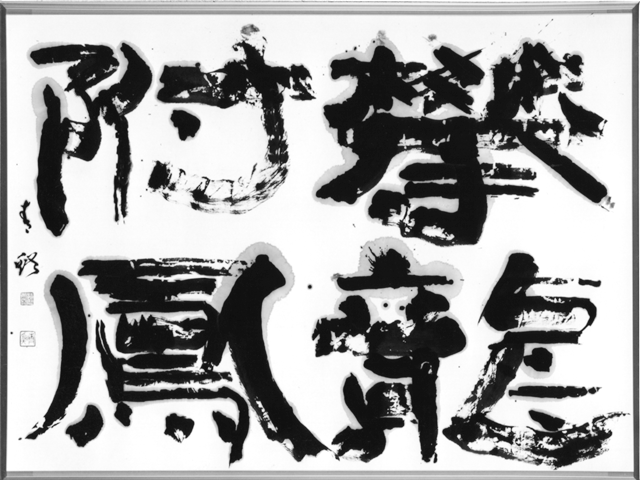 攀龍
附鳳